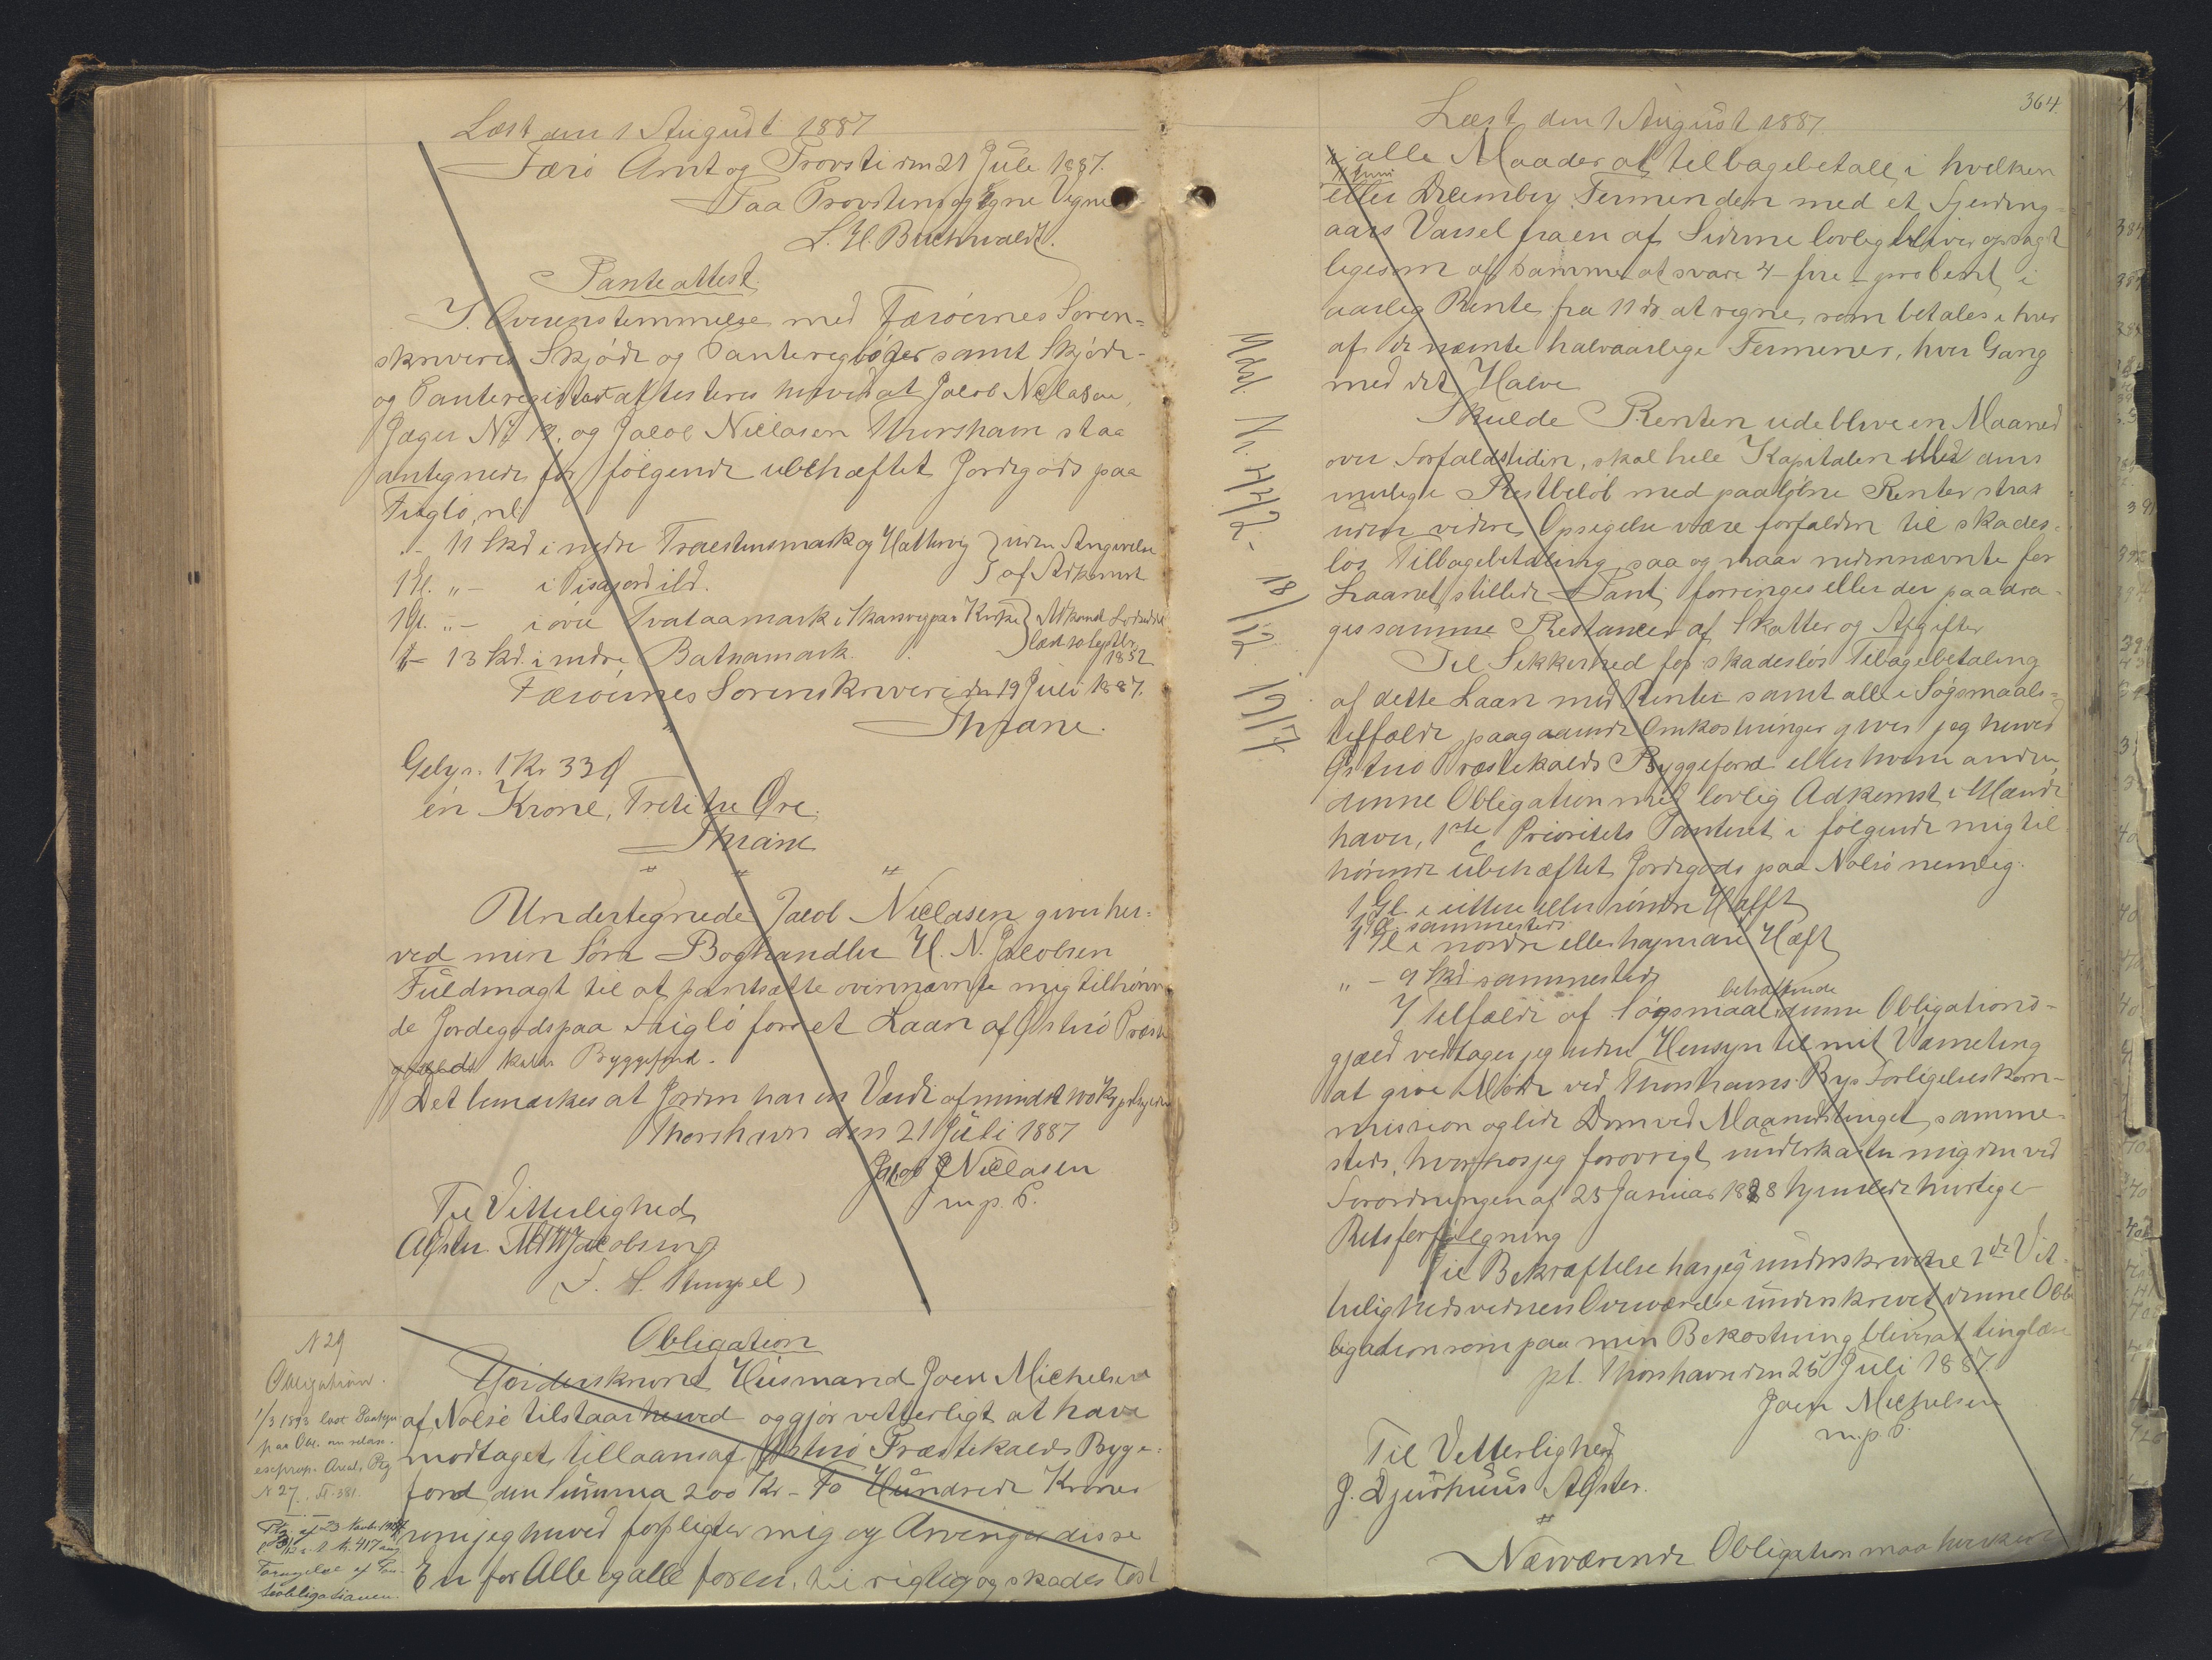 Læst den 1 August 1887
Færö Amt og Provsti den 21 Juli 1887.
Paa Provstens og Egne Vegne
L. H. Buchwaldt.
Panteattest.
I Overensstemmelse med Færöernes Soren-
skriveries Skjöde og Panteregböger samt Skjöde-
og Panteregister attesteres herved at Jacob Niclasen,
Jæger No 19, og Jacob Niclasen Thorshavn staa
antegnede for følgende ubehæftet Jordegods paa
Fuglö, nl:
"- 11 Skd i nedre Traelsensmark og Hattervig } uden Angivelse
1 Gl. "- i } af Adkomst
1 Gl. "- i övre Tvataamark i Skarvepas Kirke } Adkomst
læst 10 Septbr 1852
"- 13 Skd. i indre Batnamark.
Færöernes Sorenskriveri den 19 Juli 1887.
Thrane.
Gebyr. 1 Kr. 33 Ø
én Krone, Treti tre Øre.
Thrane
Undertegnede Jacob Niclasen giver her-
ved min Sön Boghandler H. N. Jacobsen
Fuldmagt til at pantsætte ovennævnte mig tilhören-
de Jordegods paa Fuglö for et Laan af Østerö Præste
gjælds kalds Byggefond.
Det bemærkes at Jorden har en Værdi af mindst
Thorshavn den 21 Juli 1887
Jacob J Niclasen
m. p. P.
Til Vitterlighed
Jacobsen
Obligation
N 29
Obligation.
Underskrevne Huusmand Joen Michelsen
af Nolsö tilstaar herved og gjör vitterligt at have
modtaget tillaans af Østerö Præstekalds Bygge-
fond den Summa 200 Kr - To Hundrede Kroner
som jeg herved forpligter mig og Arvinger disse
En for Alle og alle for en, til rigtig og skadeslöst
1/3 1893 lyst Paategn
paa Obl. om relax.
exprop. Areal, Reg
N 27. Fl. 381.
Ptg. af 23 Novbr
Fornyelse af Pan-
teobligationen.
364.
Læst den 1 August 1887.
i alle Maader at tilbagebetale i hvilken
11 Juni
eller December Termin den med et Fjerding-
aars Varsel fra en af Siderne lovlig bliver opsagt
ligesom af samme at svare 4 - fire - procent i
aarlig Rente fra 11 ds at regne, som betales i hver
af de nævnte halvaarlige Terminer, hver Gang
med det Halve
Skulde Renten udeblive en Maaned
over Forfaldstiden, skal hele Kapitalen eller dens
mulige Restbelöb med paalöbne Renter strax
uden videre Opsigelse være forfalden til skades-
lös Tilbagebetaling, saa og maar nedennævnte for
Laanet stillede Pant forringes eller der paadra-
ges samme Restancer af Skatter og Afgifter
Til Sikkerhed for skadeslös Tilbagebetaling
af dette Laan med Renter samt alle i Sögsmaals-
tilfælde paagaaende Omkostninger giver jeg herved
Østerö Præstekalds Byggefond eller hvem anden
denne Obligation med lovlig Adkomst i Hænde
haver, 1ste Prioritets Panteret i følgende mig til
hörende ubehæftet Jordegods paa Nolsö nemlig:
1 Gl. i ittere eller söndre Hæfft
1 Gl. sammesteds
1 Gl i nordre eller hajmare Hæft
"- 9 Skd sammesteds
I Tilfælde af Sögsmaal betræffende denne Obligations-
gjæld vedtager jeg uden Hensyn til mit Værneting
at give Möde ved Thorshavns Byes Forligelseskom-
mission og lide Dom ved Maanedstinget samme-
steds, hvorhos jeg forövrigt underkaster mig den ved
Forordningen af 25 Januar 1828 hjemlede hurtige
Retsforfölgning
Til Bekræftelse har jeg underskrevne i 2de Vit-
terlighedsvidners Overværelse underskrevet denne Obli-
gation som paa min Bekostning bliver at tinglæse
pt. Thorshavn den 25 Juli 1887
Joen Michelsen
m. p. P.
Til Vitterlighed
J. Djurhuus
Nærværende Obligation maa